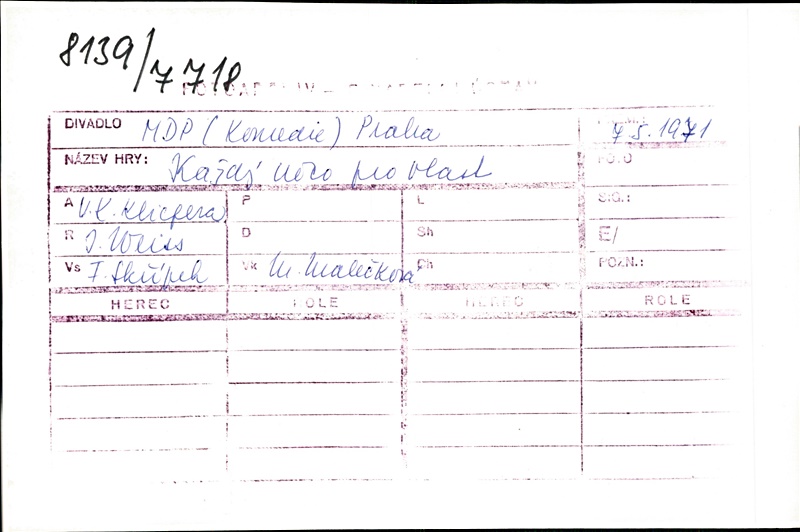 8139/7718
FOTOARCHIV – DIVADELNÍ ÚSTAV
DIVADLO MDP (Komedie) Praha 7.5.1971
NÁZEV HRY: Každý něco pro vlast FOTO
A V.K. Klicpera P L SIG.:
R J. Weiss D Sh E/
Vs F. Skřípek Vk M. Malečková Ph POZN.:
HEREC ROLE HEREC ROLE